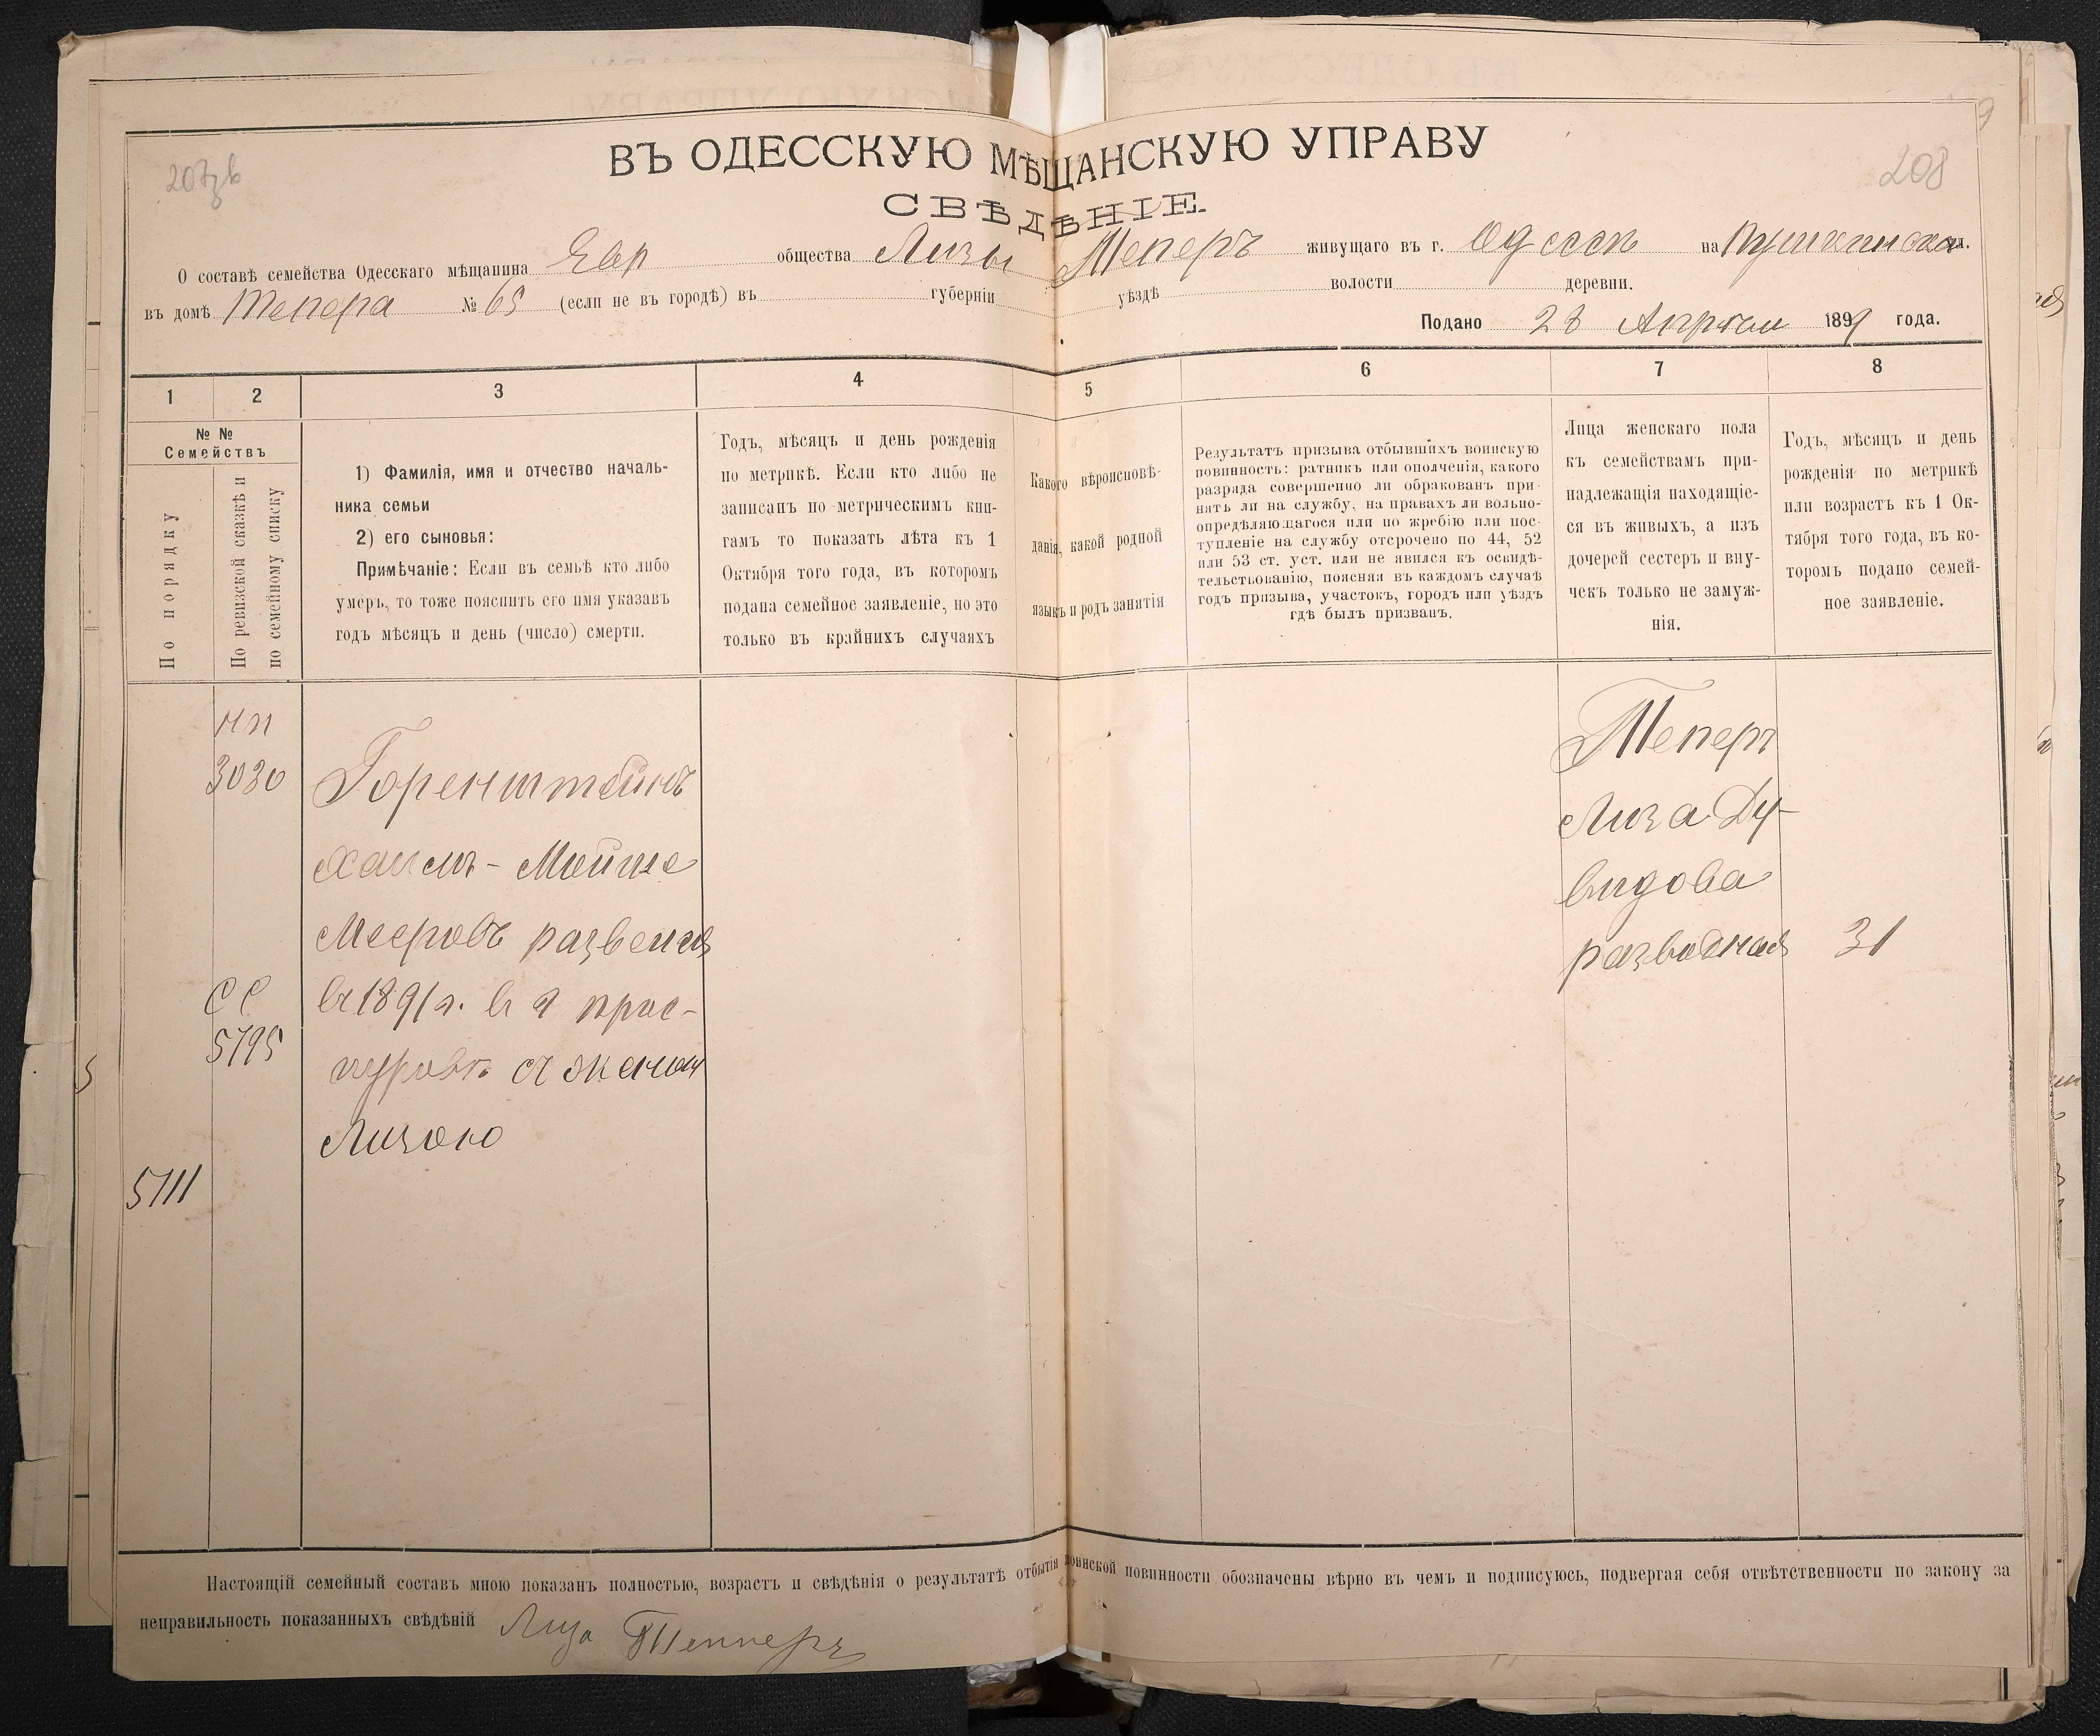 207зв
208
ВЪ ОДЕССКУЮ МѢЩАНСКУЮ УПРАВУ
СВѢДѢНІЕ.
О составѣ семейства Одесскаго мѣщанина Евр общества Лизы Теперъ живущаго въ г. Одессѣ на Пушкинской ул.
въ домѣ Тепера № 65 (если не въ городѣ) въ губерніи уѣздѣ волости деревни.
Подано 28 Апрѣля 1899 года.
1 2 3 4 5 6 7 8
№ №
Семействъ
По порядку
По ревизской сказкѣ и
по семейному списку
1) Фамилія, имя и отчество началь-
ника семьи
2) его сыновья:
Примѣчаніе: Если въ семьѣ кто либо
умеръ, то тоже пояснить его имя указавъ
годъ мѣсяцъ и день (число) смерти.
Годъ, мѣсяцъ и день рожденія
по метрикѣ. Если кто либо не
записанъ по метрическимъ кни-
гамъ то показать лѣта къ 1
Октября того года, въ которомъ
подана семейное заявленіе, но это
только въ крайнихъ случаяхъ
Какого вѣроисповѣ-
данія, какой родной
языкъ и родъ занятія
Результатъ призыва отбывшихъ воинскую
повинность: ратникъ или ополченія, какого
разряда совершенно ли обракованъ при-
нятъ ли на службу, на правахъ ли вольно-
опредѣляющагося или по жребію или пос-
тупленіе на службу отсрочено по 44, 52
или 53 ст. уст. или не явился къ освидѣ-
тельствованію, поясняя въ каждомъ случаѣ
годъ призыва, участокъ, городъ или уѣздъ
гдѣ былъ призванъ.
Лица женскаго пола
къ семействамъ при-
надлежащія находящіе-
ся въ живыхъ, а изъ
дочерей сестеръ и вну-
чекъ только не замуж-
нія.
Годъ, мѣсяцъ и день
рожденія по метрикѣ
или возрастъ къ 1 Ок-
тября того года, въ ко-
торомъ подано семей-
ное заявленіе.
нп
3030
Горенштейнъ
Хаимъ-Мойше
Мееровъ развелся
въ 1891 г. въ
съ женою
Лизою
СС
5195
5111
Теперъ
Лиза Ду-
видова
разводная 31
Настоящій семейный составъ мною показанъ полностью, возрастъ и свѣдѣнія о результатѣ отбытія воинской повинности обозначены вѣрно въ чемъ и подписуюсь, подвергая себя отвѣтственности по закону за
неправильность показанныхъ свѣдѣній Лиза Тепперъ